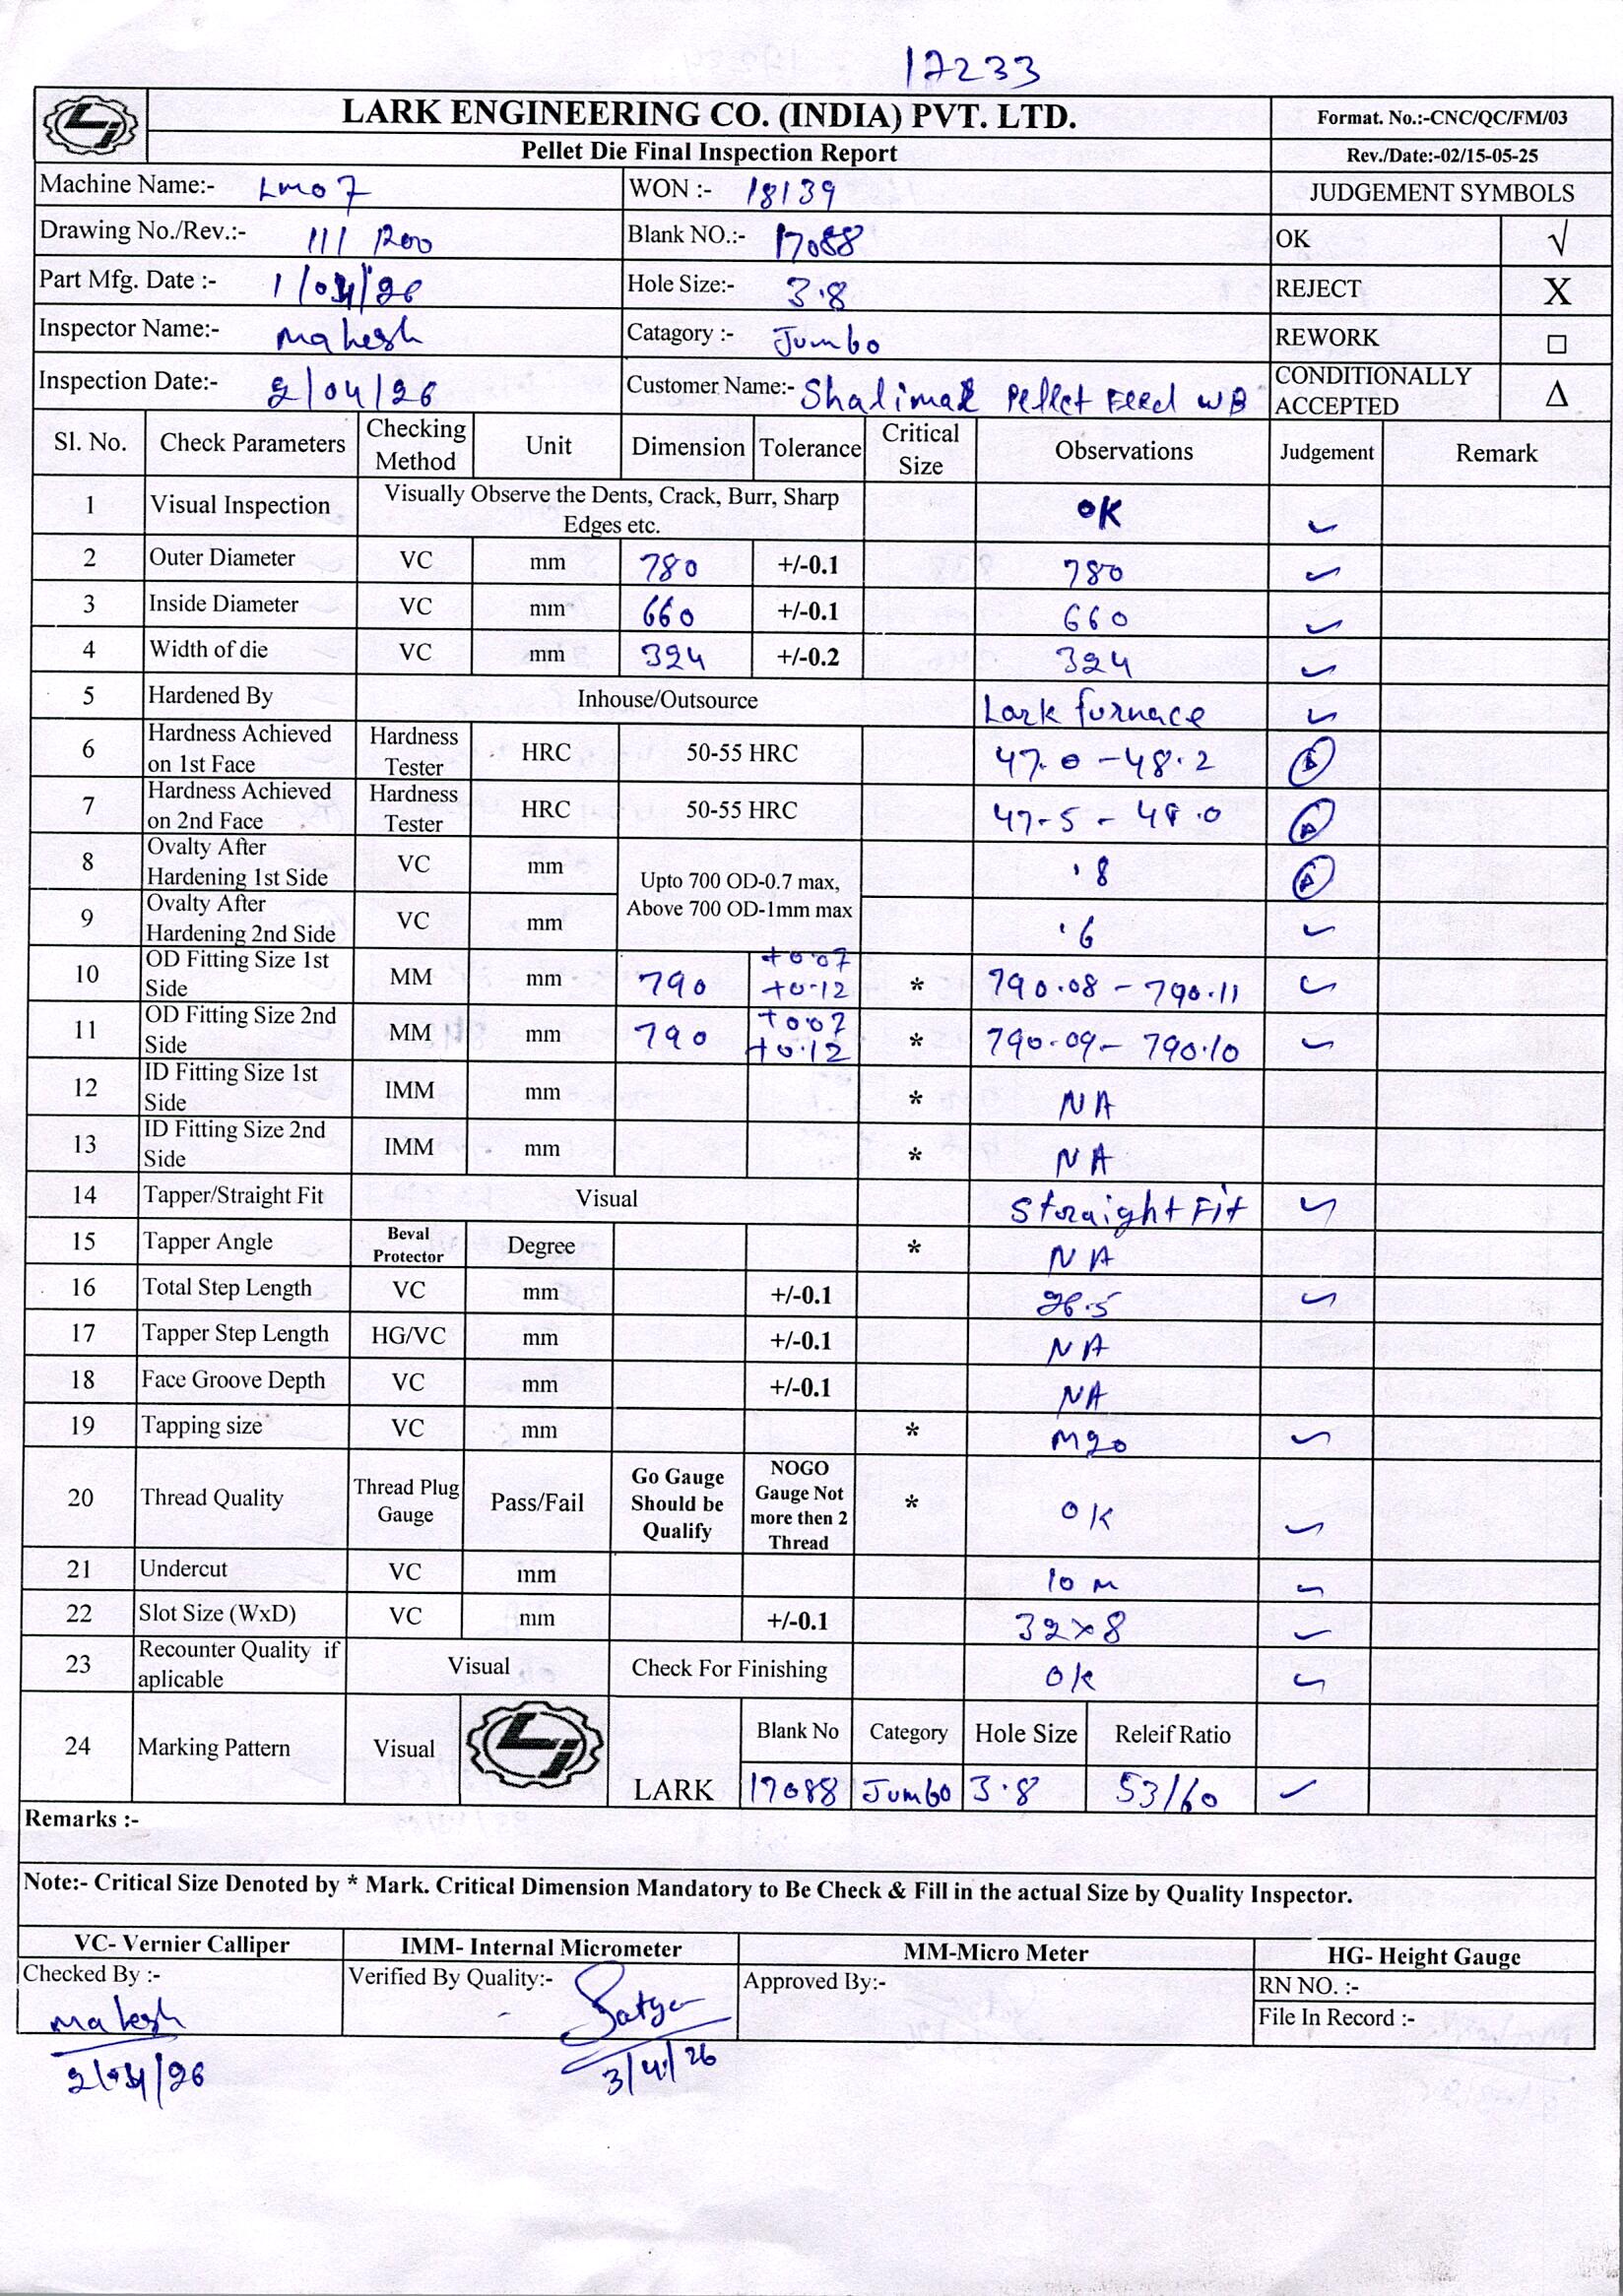 17233
LARK ENGINEERING CO. (INDIA) PVT. LTD. Format. No.:-CNC/QC/FM/03
Pellet Die Final Inspection Report Rev./Date:-02/15-05-25
Machine Name:- Lm07 WON :- 18139 JUDGEMENT SYMBOLS
Drawing No./Rev.:- 111 R00 Blank NO.:- 17088 OK √
Part Mfg. Date :- 1/04/26 Hole Size:- 3.8 REJECT X
Inspector Name:- Mahesh Catagory :- Jumbo REWORK □
Inspection Date:- 2/04/26 Customer Name:- Shalimar Pellet Feed WB CONDITIONALLY ACCEPTED Δ
Sl. No. Check Parameters Checking Method Unit Dimension Tolerance Critical Size Observations Judgement Remark
1 Visual Inspection Visually Observe the Dents, Crack, Burr, Sharp Edges etc. OK ✓
2 Outer Diameter VC mm 780 +/-0.1 780 ✓
3 Inside Diameter VC mm 660 +/-0.1 660 ✓
4 Width of die VC mm 324 +/-0.2 324 ✓
5 Hardened By Inhouse/Outsource Lark furnace ✓
6 Hardness Achieved on 1st Face Hardness Tester HRC 50-55 HRC 47.0 - 48.2
7 Hardness Achieved on 2nd Face Hardness Tester HRC 50-55 HRC 47-5 - 48.0
8 Ovalty After Hardening 1st Side VC mm Upto 700 OD-0.7 max, Above 700 OD-1mm max .8
9 Ovalty After Hardening 2nd Side VC mm .6 ✓
10 OD Fitting Size 1st Side MM mm 790 +0.07 +0.12 * 790.08 - 790.11 ✓
11 OD Fitting Size 2nd Side MM mm 790 +0.07 +0.12 * 790.09 - 790.10 ✓
12 ID Fitting Size 1st Side IMM mm * NA
13 ID Fitting Size 2nd Side IMM mm * NA
14 Tapper/Straight Fit Visual Straight Fit ✓
15 Tapper Angle Beval Protector Degree * NA
16 Total Step Length VC mm +/-0.1 26.5 ✓
17 Tapper Step Length HG/VC mm +/-0.1 NA
18 Face Groove Depth VC mm +/-0.1 NA
19 Tapping size VC mm * M20 ✓
20 Thread Quality Thread Plug Gauge Pass/Fail Go Gauge Should be Qualify NOGO Gauge Not more then 2 Thread * OK ✓
21 Undercut VC mm 10 ✓
22 Slot Size (WxD) VC mm +/-0.1 32x8 ✓
23 Recounter Quality if aplicable Visual Check For Finishing OK ✓
24 Marking Pattern Visual LARK Blank No Category Hole Size Releif Ratio
17088 Jumbo 3.8 53/60 ✓
Remarks :-
Note:- Critical Size Denoted by * Mark. Critical Dimension Mandatory to Be Check & Fill in the actual Size by Quality Inspector.
VC- Vernier Calliper IMM- Internal Micrometer MM-Micro Meter HG- Height Gauge
Checked By :- Mahesh Verified By Quality:- Satya Approved By:- RN NO. :-
File In Record :-
2/04/26 3/4/26